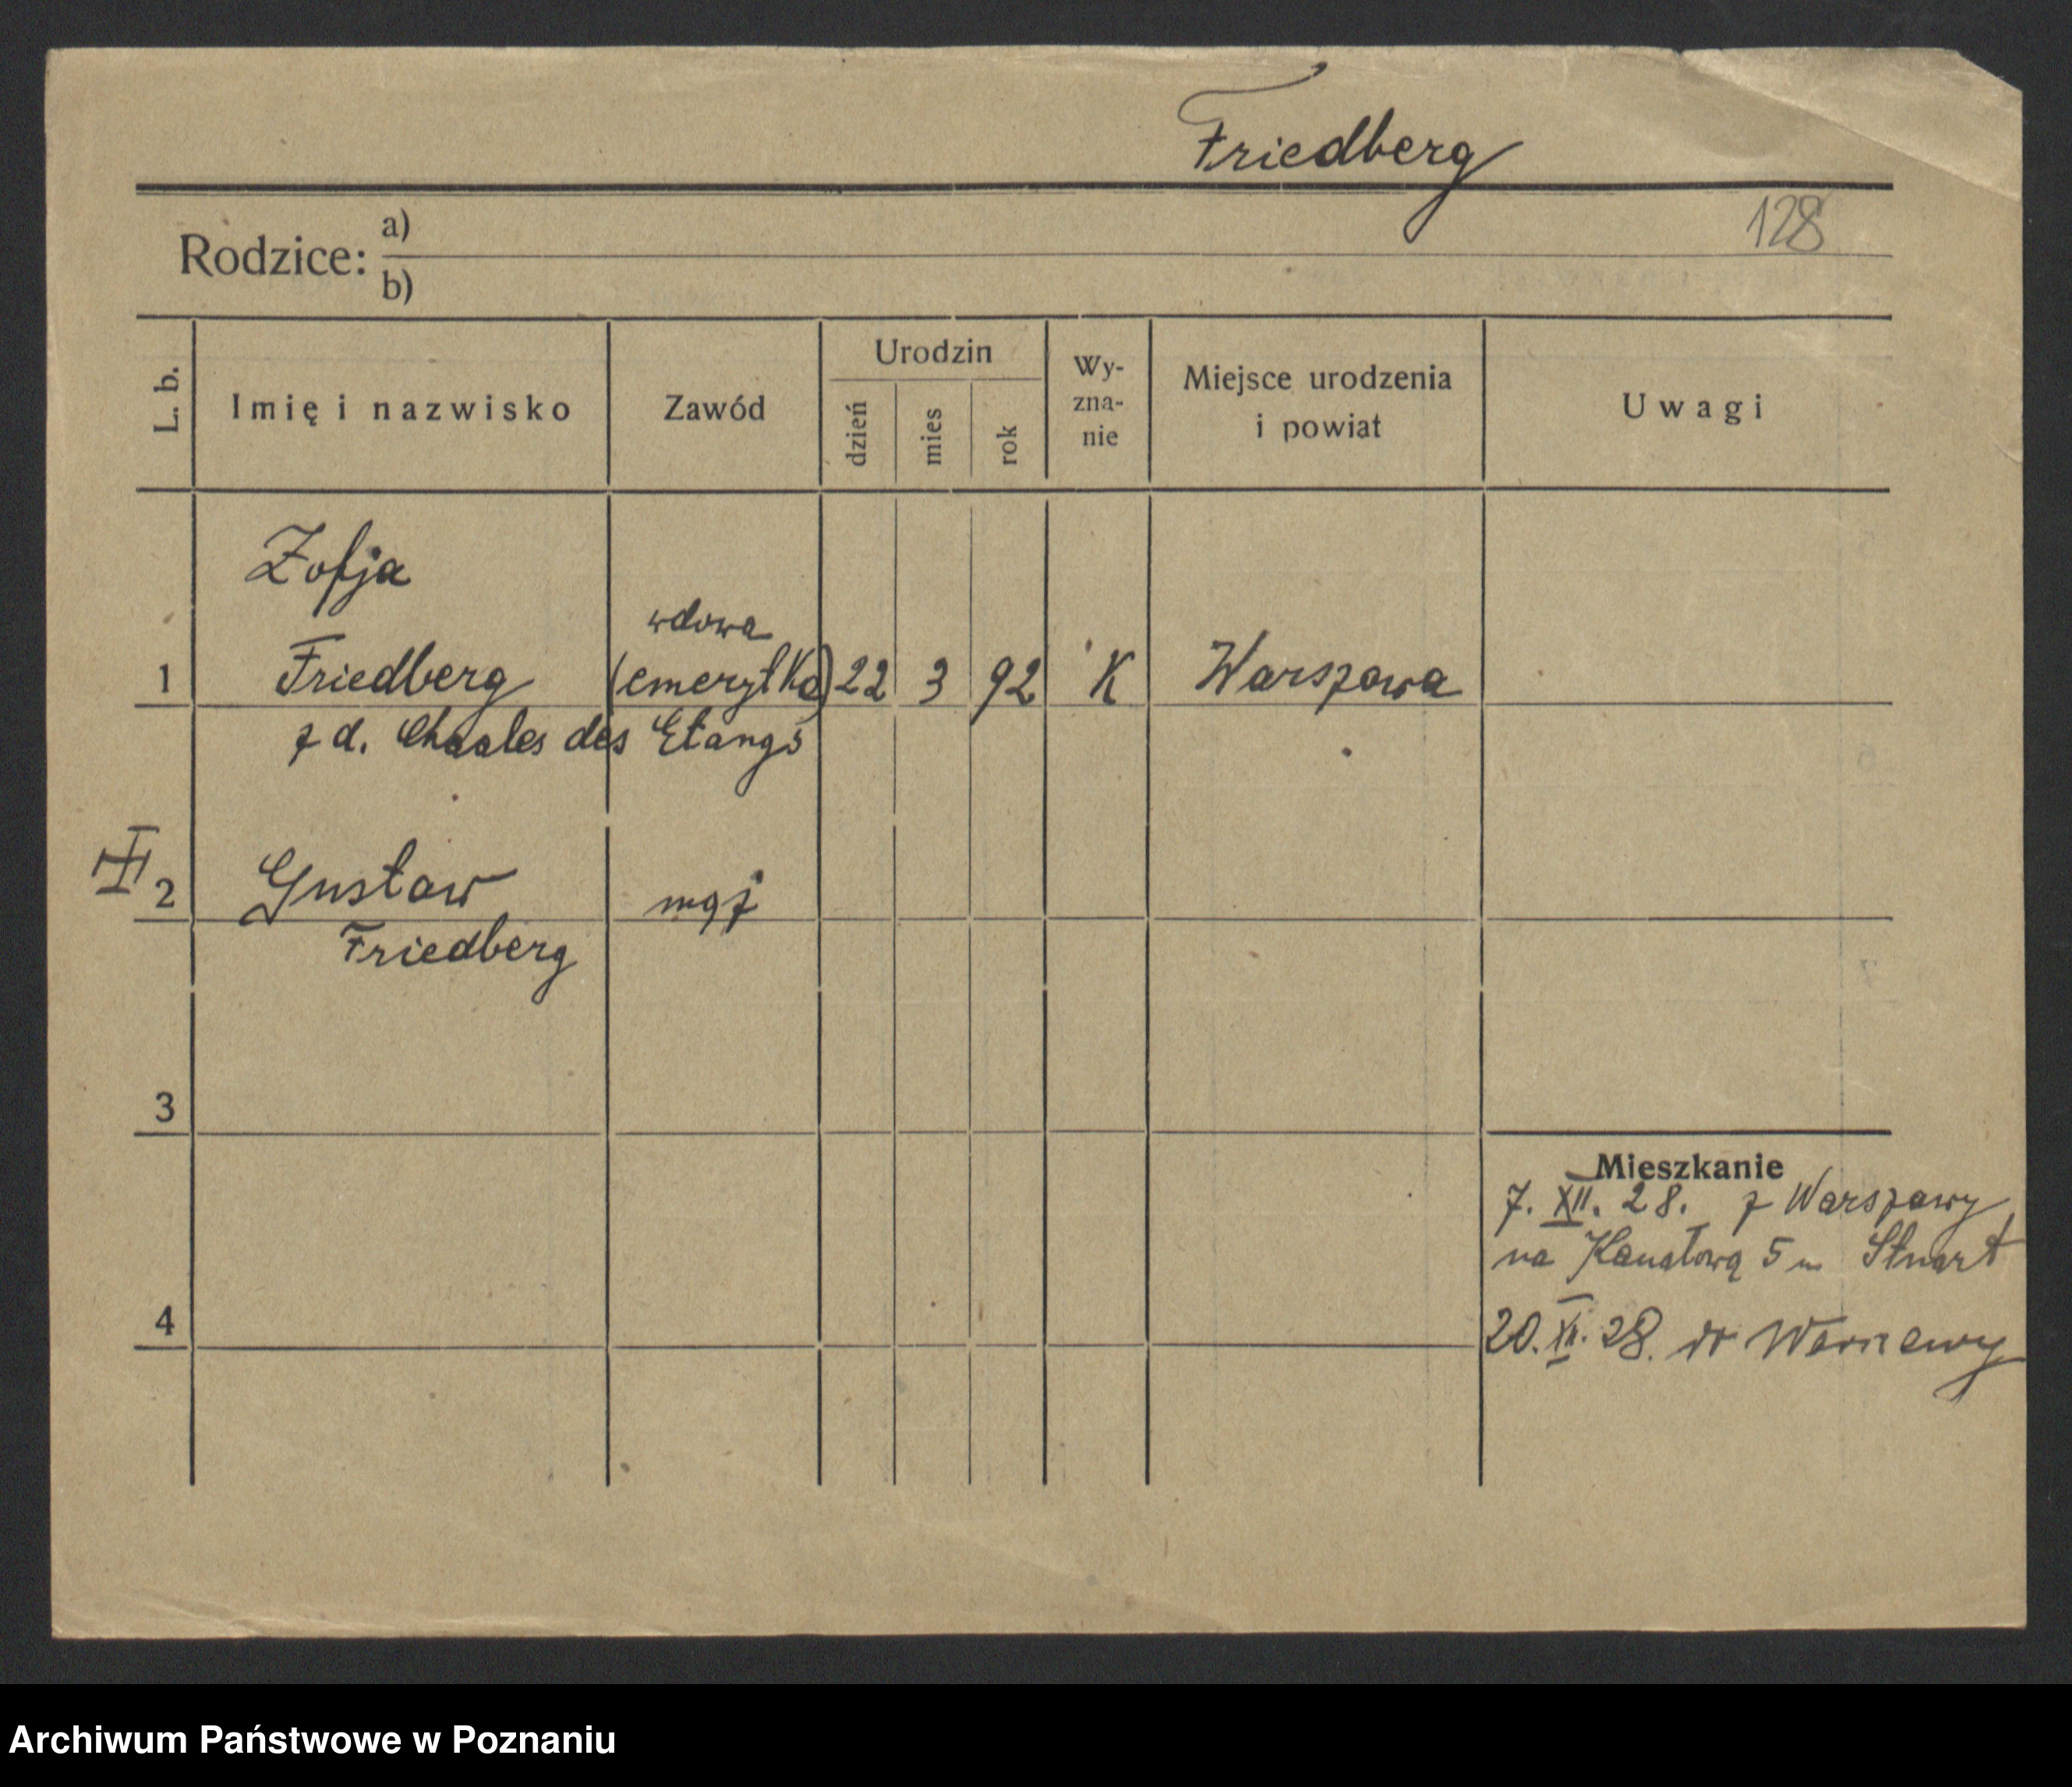 Friedberg
128
Rodzice: a)
b)
L. b.
Imię i nazwisko
Zawód
Urodzin
dzień
mies
rok
Wy-
zna-
nie
Miejsce urodzenia
i powiat
Uwagi
Zofja
wdowa
1 Friedberg (emerytka) 22 3 92 K Warszawa
z d. Chasles des Etangs
2 Gustaw mąż
Friedberg
3
Mieszkanie
7. XII. 28. z Warszawy
na Kanałową 5 m Stuart
20. XII. 28. do Warszawy
4
Archiwum Państwowe w Poznaniu